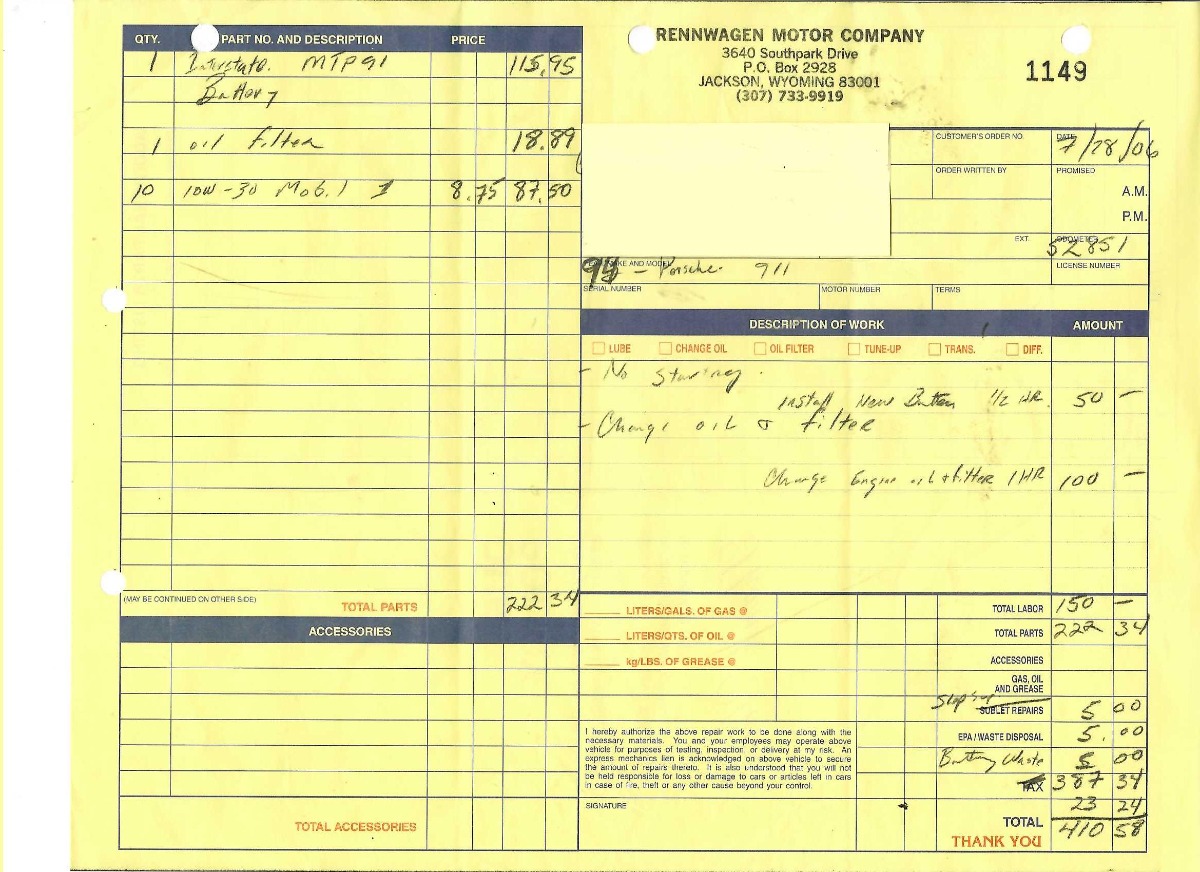 QTY. PART NO. AND DESCRIPTION PRICE
1 Interstate MTP91 115.95
Battery
1 oil filter 18.89
10 10W-30 Mobil 1 8.75 87.50
(MAY BE CONTINUED ON OTHER SIDE) TOTAL PARTS 222 34
ACCESSORIES
TOTAL ACCESSORIES
RENNWAGEN MOTOR COMPANY
3640 Southpark Drive
P.O. Box 2928
JACKSON, WYOMING 83001
(307) 733-9919
1149
CUSTOMER'S ORDER NO. DATE 7/28/06
ORDER WRITTEN BY PROMISED
A.M.
P.M.
EXT. ODOMETER 52851
MAKE AND MODEL LICENSE NUMBER
- Porsche 911
SERIAL NUMBER MOTOR NUMBER TERMS
DESCRIPTION OF WORK AMOUNT
LUBE CHANGE OIL OIL FILTER TUNE-UP TRANS. DIFF.
- No Starting.
install New Battery 1/2 HR. 50 —
- Change oil & filter
Change Engine oil & filter 1 HR 100 —
LITERS/GALS. OF GAS @ TOTAL LABOR 150 —
LITERS/QTS. OF OIL @ TOTAL PARTS 222 34
kg/LBS. OF GREASE @ ACCESSORIES
GAS, OIL
AND GREASE
SUBLET REPAIRS 5 00
EPA / WASTE DISPOSAL 5.00
Battery Waste 5 00
TAX 387 34
23 24
TOTAL 410 58
THANK YOU
I hereby authorize the above repair work to be done along with the
necessary materials. You and your employees may operate above
vehicle for purposes of testing, inspection, or delivery at my risk. An
express mechanics lien is acknowledged on above vehicle to secure
the amount of repairs thereto. It is also understood that you will not
be held responsible for loss or damage to cars or articles left in cars
in case of fire, theft or any other cause beyond your control.
SIGNATURE